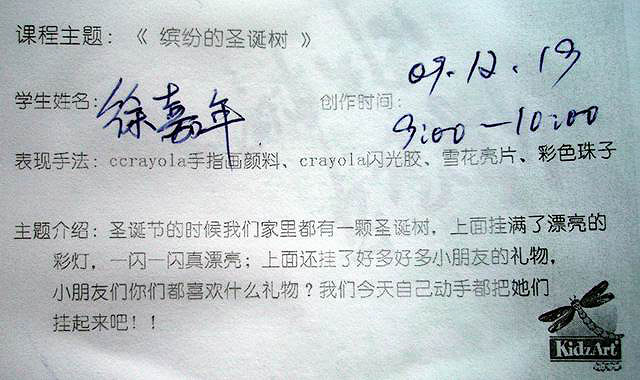 课程主题：《 缤纷的圣诞树 》
学生姓名：徐嘉年 创作时间：09.12.19
9:00—10:00
表现手法：ccrayola手指画颜料、crayola闪光胶、雪花亮片、彩色珠子
主题介绍：圣诞节的时候我们家里都有一颗圣诞树，上面挂满了漂亮的
彩灯，一闪一闪真漂亮；上面还挂了好多好多小朋友的礼物，
小朋友们你们都喜欢什么礼物？我们今天自己动手都把她们
挂起来吧！！
KidzArt